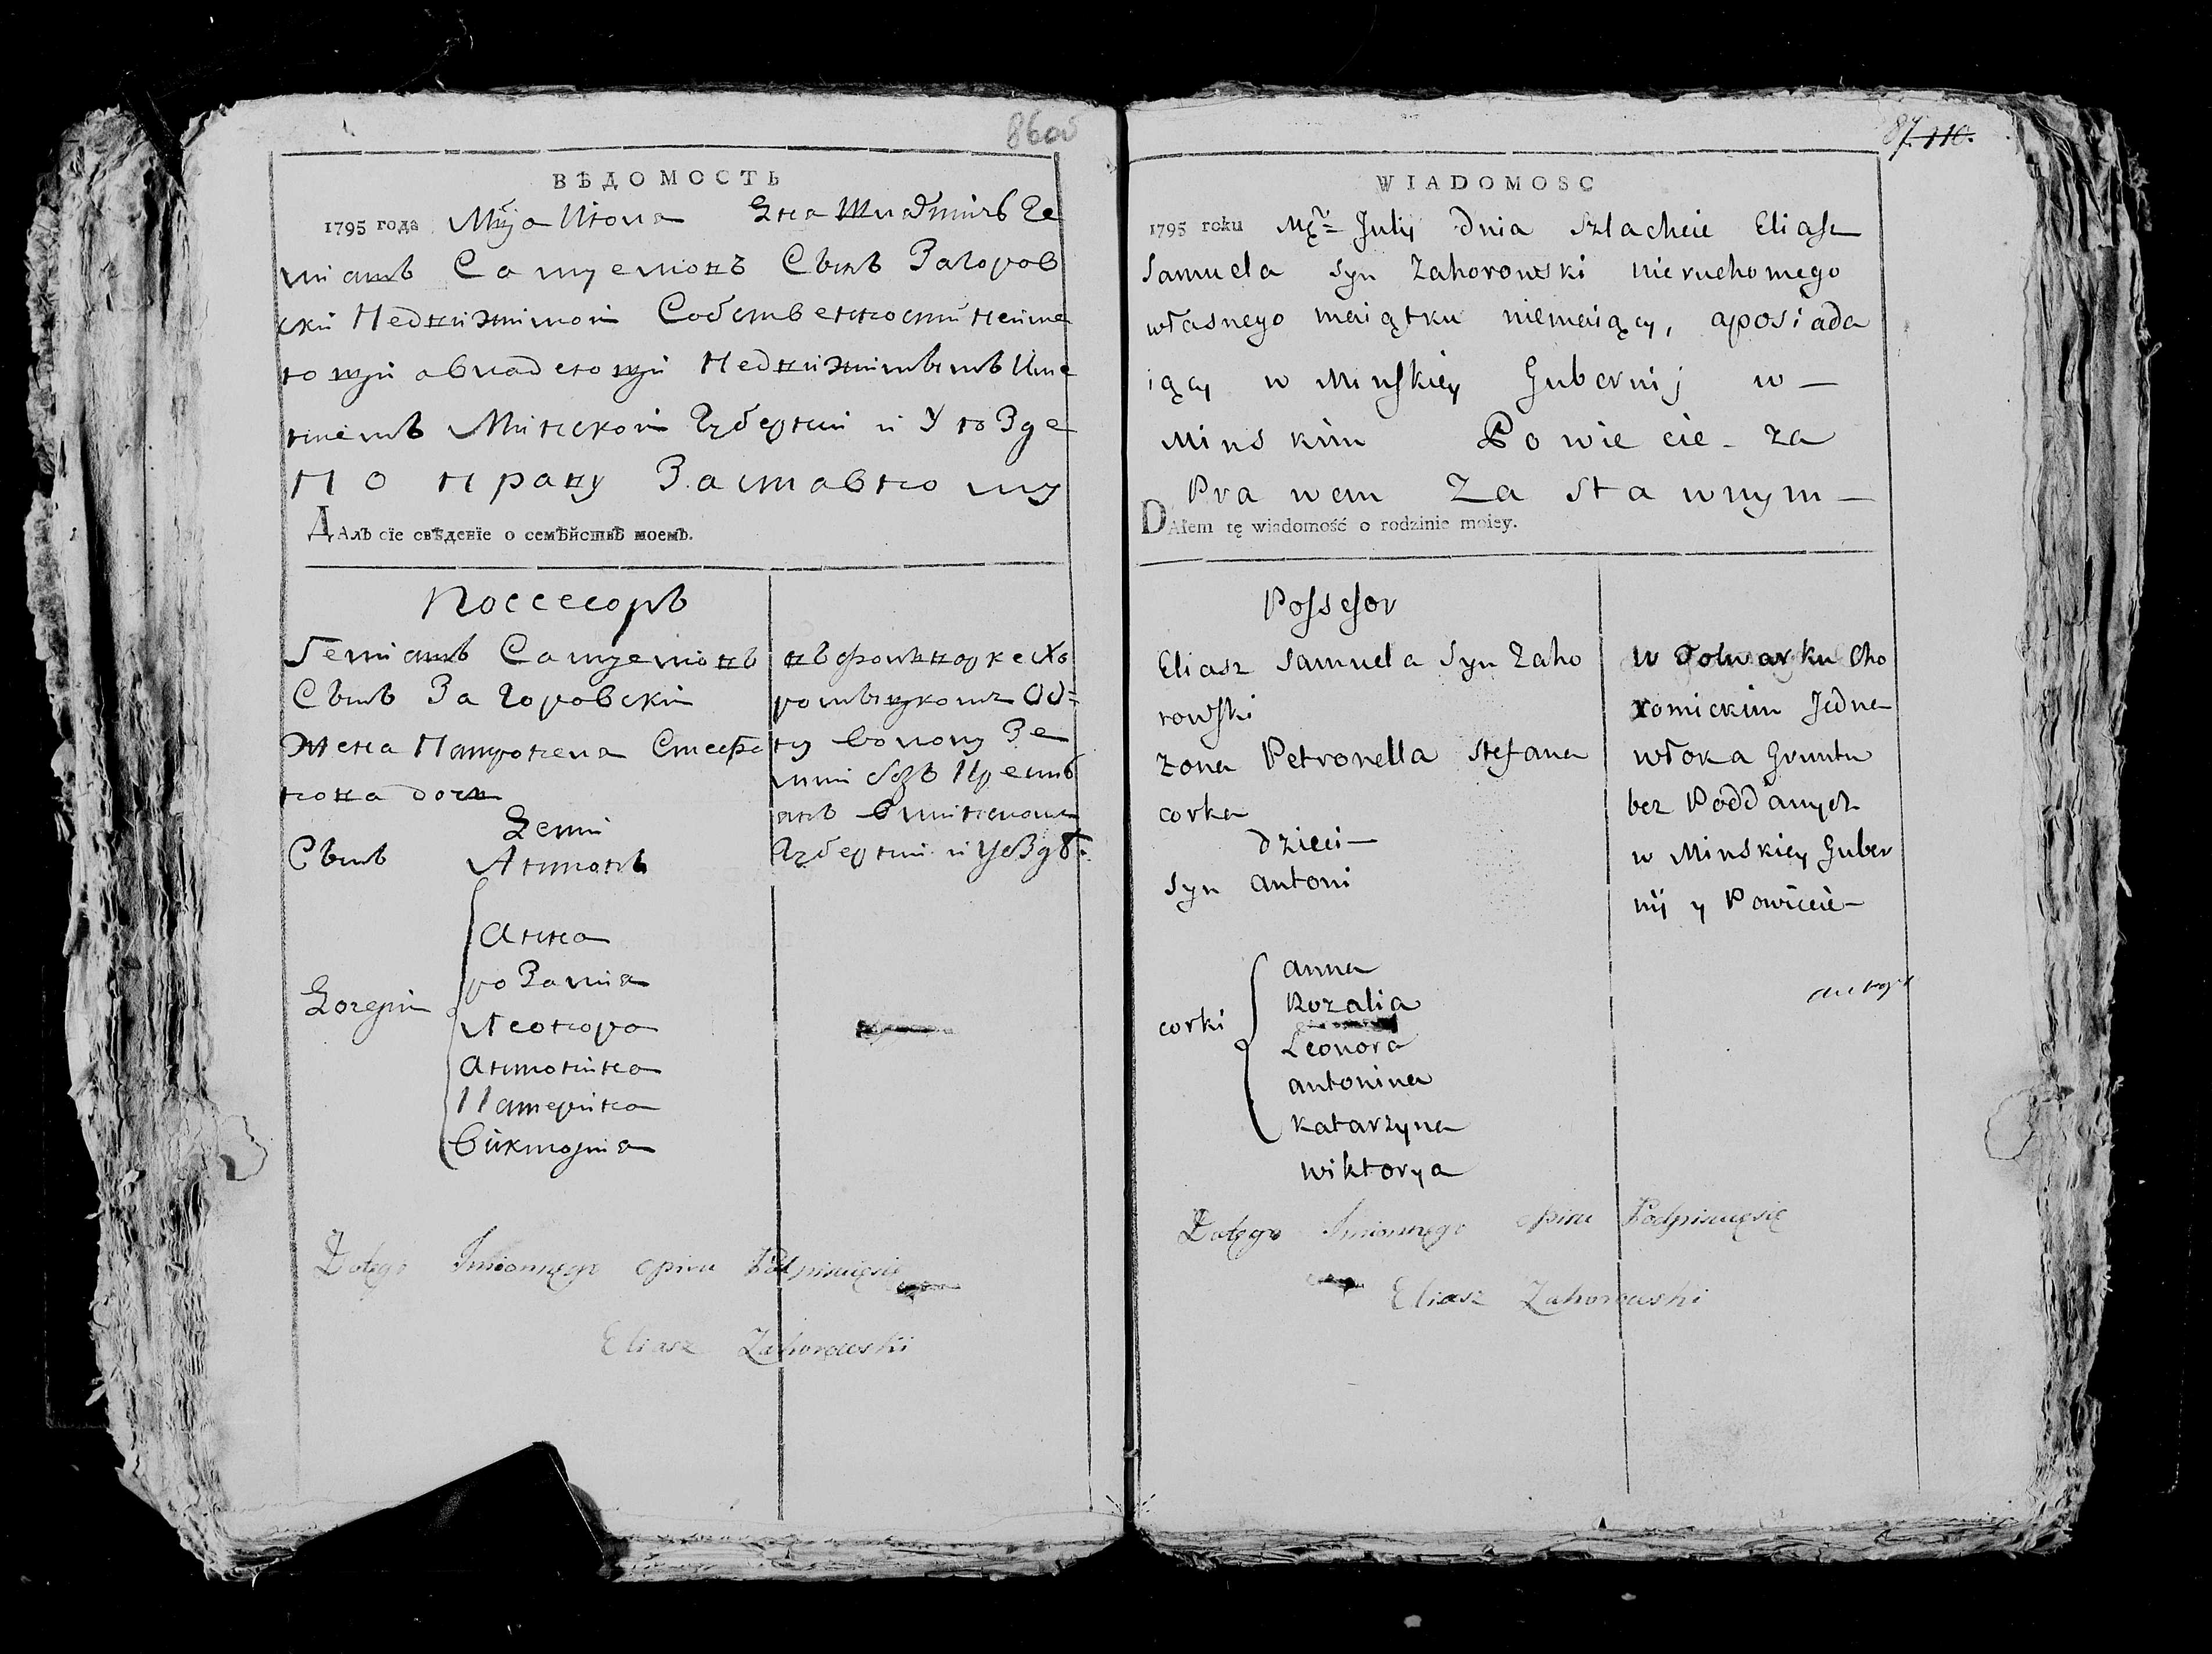 86об
ВѢДОМОСТЬ
1795 года Мца Июля Дня Шляхтичъ Ге
лiашъ Самуеловъ Сынъ Загоров
ски Недвижимой Собственности неиме
ющи авладеющи Недвижимымъ Име
ниемъ Минской Губернии и Уюзде
По праву Заставному
ДАлъ сїе свѣденїе о семѣйствѣ моемъ.
Поссесоръ
Гелиашъ Самуеловъ
Сынъ Загоровски
Жена Петронела Стефа
нова дочь
Дети
Сынъ Антонъ
Дочери
Анна
розалия
Леонора
антонина
Катерина
Викториа
въ фольварке Хо
Губернии и Уездѣ
Dotego Imiennego opisu Podpisuięsię
Eliasz Zahorowski
87. 110.
WIADOMOSC
1795 roku Mca Julij dnia Szlachcic Eliasz
Samuela Syn Zahorowski nieruchomego
własnego maiątku niemaiący, aposiada
iący w Minskiey Gubernij w
Minskim Powiecie za
Prawem Zastawnym
DAłem tę wiadomość o rodzinie moiey.
Possesor
Eliasz Samuela Syn Zaho
rowski
żona Petronella Stefana
corka
dzieci
Syn antoni
corki
anna
Rozalia
Leonora
antonina
Katarzyna
wiktorya
w Folwarku Cho
romickim Jedna
włoka Gruntu
bez Poddanych
w Minskiey Guber
nij y Powiecie
Dotego Imiennego opisu Podpisuięsię
Eliasz Zahorowski